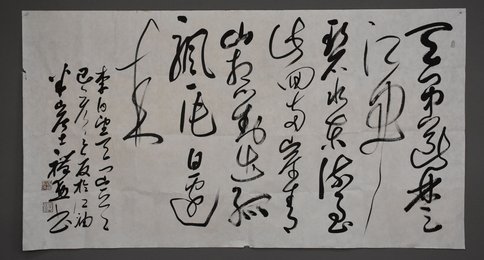 天门中断楚
江开
碧水东流至
此回两岸青
山相对出孤
帆一片日边
来
李白望天门山
己亥 之夏於江油
书